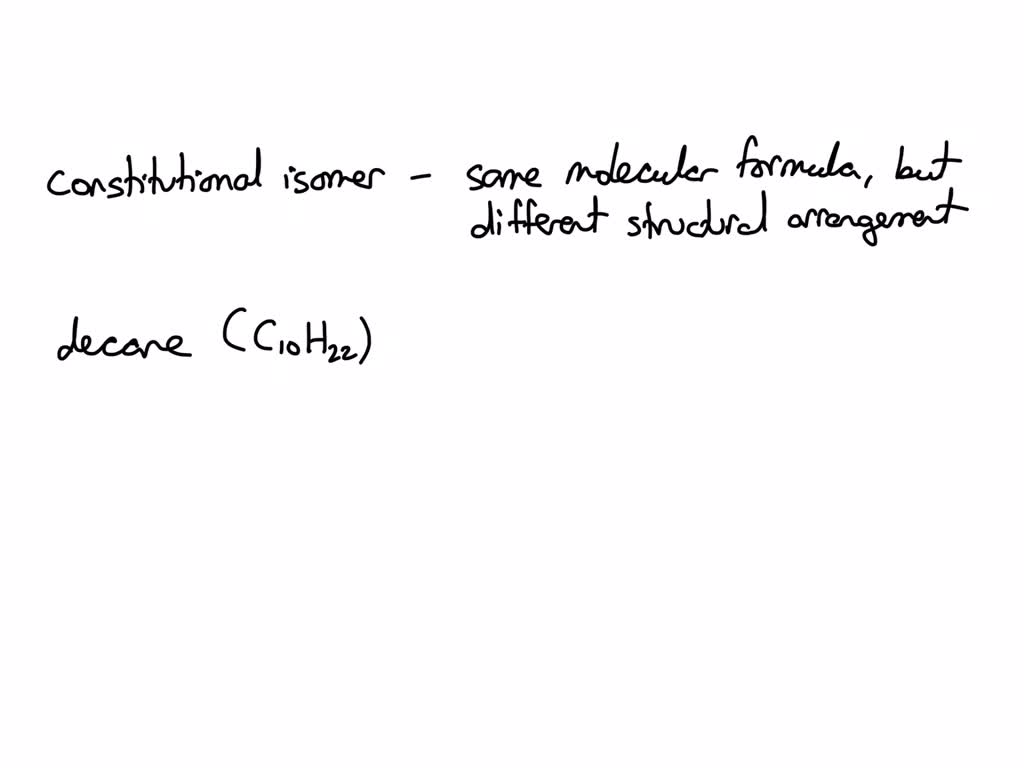 constitutional isomer – same molecular formula, but
different structural arrangement
decane (C₁₀H₂₂)